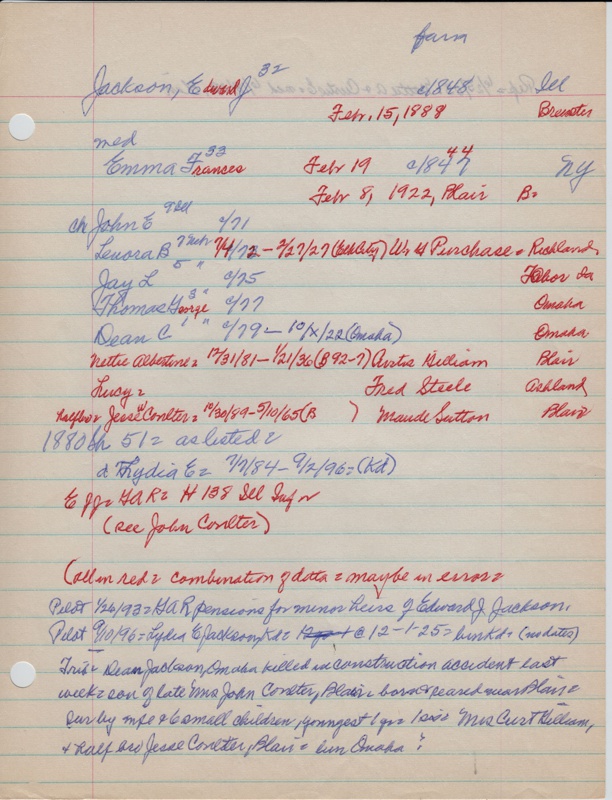 farm
Jackson, Edward J 32 c/1848 Ill
Feb. 15, 1888 Brewster
med
Emma Frances 33 Feb 19 c/1847 44 NY
Feb 8, 1922, Blair B=
ch John E 9 Ill c/71
Lenora B 7 Nebr 7/4/72 - 2/27/27 Wm H Purchase = Richland
Jay L 5 " c/75 Tabor Ia
Thomas George 3 " c/77 Omaha
Dean C 1 " c/79 - 10/x/22 (Omaha) Omaha
Nettie Albertine = 12/31/81 - 1/21/36 (B 92-7) Curtis Killiam Blair
Lucy = Fred Steele Ashland
Halfbro = Jesse Coulter = 10/30/89 - 5/10/65 (B ) Maude Sutton Blair
1880 51 = as listed =
d Lydia E = 7/7/84 - 9/2/96 = (Kd)
E J J = GAR = H 138 Ill Inf
(see John Coulter)
(all in red = combination of data = maybe in error =
Pilot 1/26/93 = GAR pensions for minor heirs of Edward J. Jackson.
Pilot 9/10/96 = Lydia E Jackson, Kd = @ 12-1-25 = bur Kd = (no dates)
Trib = Dean Jackson, Omaha killed in construction accident last
week = son of late Mrs John Coulter, Blair = born & reared near Blair =
sur by wife & 6 small children, youngest 1 yr = 1 sis = Mrs Curt Killiam,
& half bro Jesse Coulter, Blair = bur Omaha?